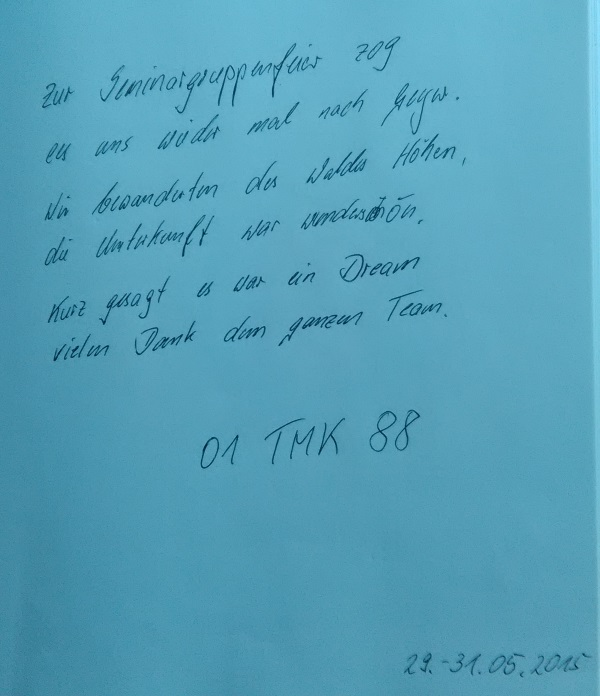 Zur Seminargruppenfeier zog
es uns wieder mal nach Geyer.
Wir bewanderten des Waldes Höhen,
die Unterkunft war wunderschön.
Kurz gesagt es war ein Dream
vielen Dank dem ganzen Team.
01 TMK 88
29.-31.05.2015